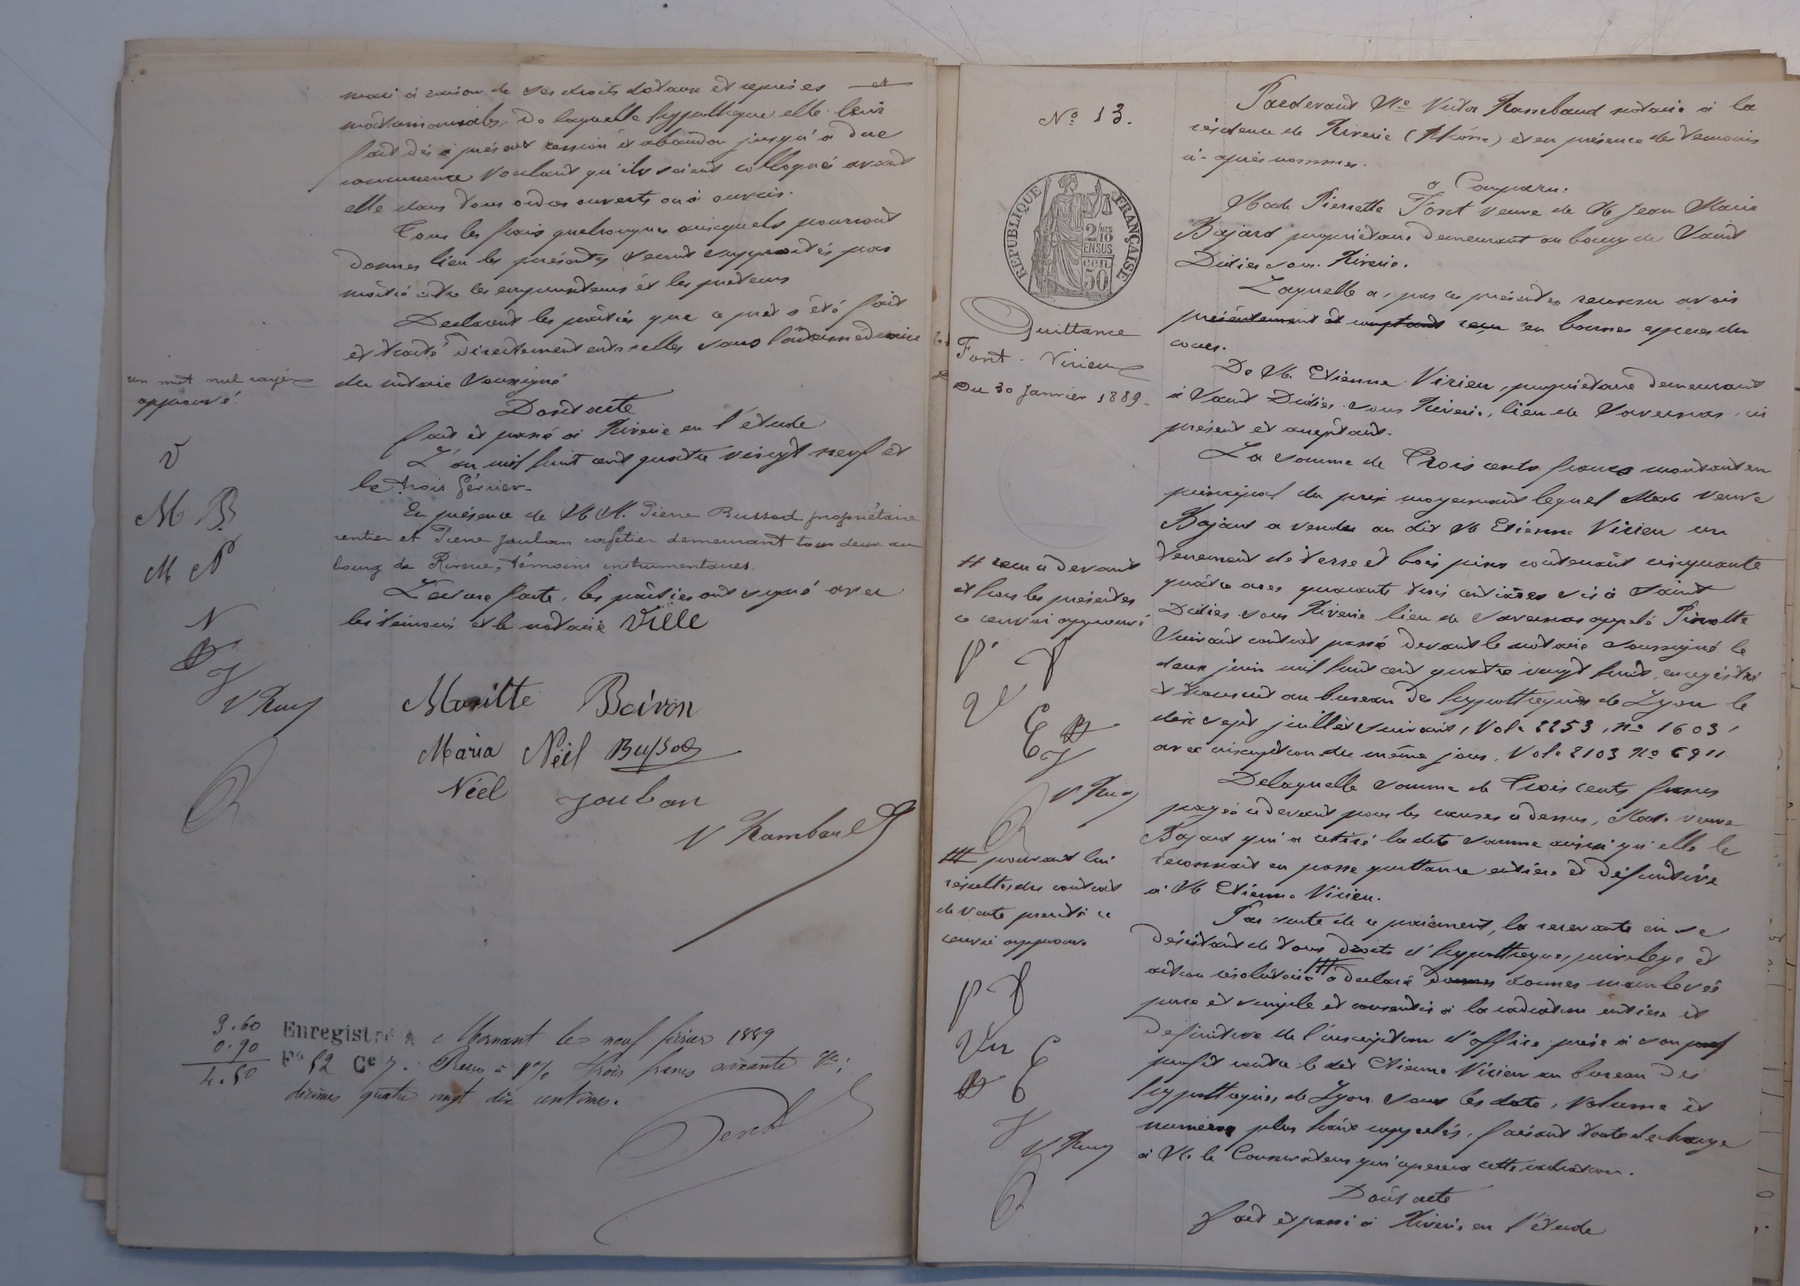 mari à raison de ses droits dotaux et reprises et
matrimoniales, de laquelle hypothèque elle leur
fait dès à présent cession et abandon jusqu'à due
concurrence voulant qu'ils soient colloqués avant
elle dans tous ordres ouverts ou à ouvrir.
Tous les frais quelconques auxquels pourront
donner lieu les présentes seront supportés par
moitié entre les emprunteurs et les prêteurs
Declarent les parties que ce prêt a été fait
et traité directement entr'elles sans l'intermédiaire
du notaire soussigné
Dont acte
fait et passé à Riverie en l'étude
L'an mil huit cent quatre vingt neuf et
le trois février.
En présence de M M. Pierre Bussod propriétaire
rentier et Pierre Jouban cafetier demeurant tous deux au
bourg de Riverie, témoins instrumentaires.
Lecture faite, les parties ont signé avec
les témoins et le notaire Ville
un mot nul rayé
approuvé
V
M B
M N
N
J
V Ram
R
Mariette Boiron
Maria Néel Bussod
Néel Jouban
V Rambaud
3.60
0.90
4.50
Enregistré à Mornant le neuf février 1889
F° 52 Ce 7. Reçu à 1% trois francs soixante c;
décimes quatre vingt dix centimes.
N° 13.
RÉPUBLIQUE FRANÇAISE
2/10 EN SUS
50 cen
Quittance
Font - Virieux
Du 30 Janvier 1889.
Pardevant Me Victor Rambaud notaire à la
résidence de Riverie (Rhône) et en présence des témoins
ci-après nommés.
a Comparu:
Made Pierrette Font veuve de M Jean Marie
Bajard propriétaire demeurant au bourg de Saint
Didier sous Riverie.
Laquelle a, par ces présentes reconnu avoir
présentement et comptant reçu en bonnes espèces du
cours.
De M. Etienne Virieu, propriétaire demeurant
à Saint Didier sous Riverie, lieu de Savernas ici
présent et acceptant.
La somme de Trois cents francs montant en
principal du prix moyennant lequel Made veuve
Bajard a vendu au dit M Etienne Virieu un
tenement de terre et bois pins contenant cinquante
quatre ares quarante trois centiares sis à Saint
Didier sous Riverie lieu de Savernas appelé Pinotte
Suivant contrat passé devant le notaire soussigné le
deux juin mil huit cent quatre vingt huit, enregistré
et transcrit au bureau des hypothèques de Lyon le
dix sept juillet suivant, Vol. 2253, n° 1603,
avec inscription du même jour, Vol. 2103 N° 6911
De laquelle somme de Trois cents francs
payée ci devant pour les causes ci dessus, Made veuve
Bajard qui a retiré la dite somme ainsi qu'elle le
reconnait en passe quittance entière et définitive
à M Etienne Virieu.
Par suite de ce paiement, la recevante en se
désistant de tous droits d'hypothèque, privilège et
action résolutoire # a déclaré donner donner mainlevée
pure et simple et consentir à la radiation entière et
définitive de l'inscription d'office prise à son prof
profit contre le dit Etienne Virieu au bureau des
hypothèques de Lyon sous les date, volume et
numéro plus haut rappelés, faisant toute décharge
à M. le Conservateur qui opérera cette radiation.
Dont acte
fait et passé à Riverie en l'étude
# reçu ci devant
et hors les présentes
ce renvoi approuvé
V Ram
R
# pouvant lui
résulter du contrat
de vente précité ce
renvoi approuvé
V Ram
R